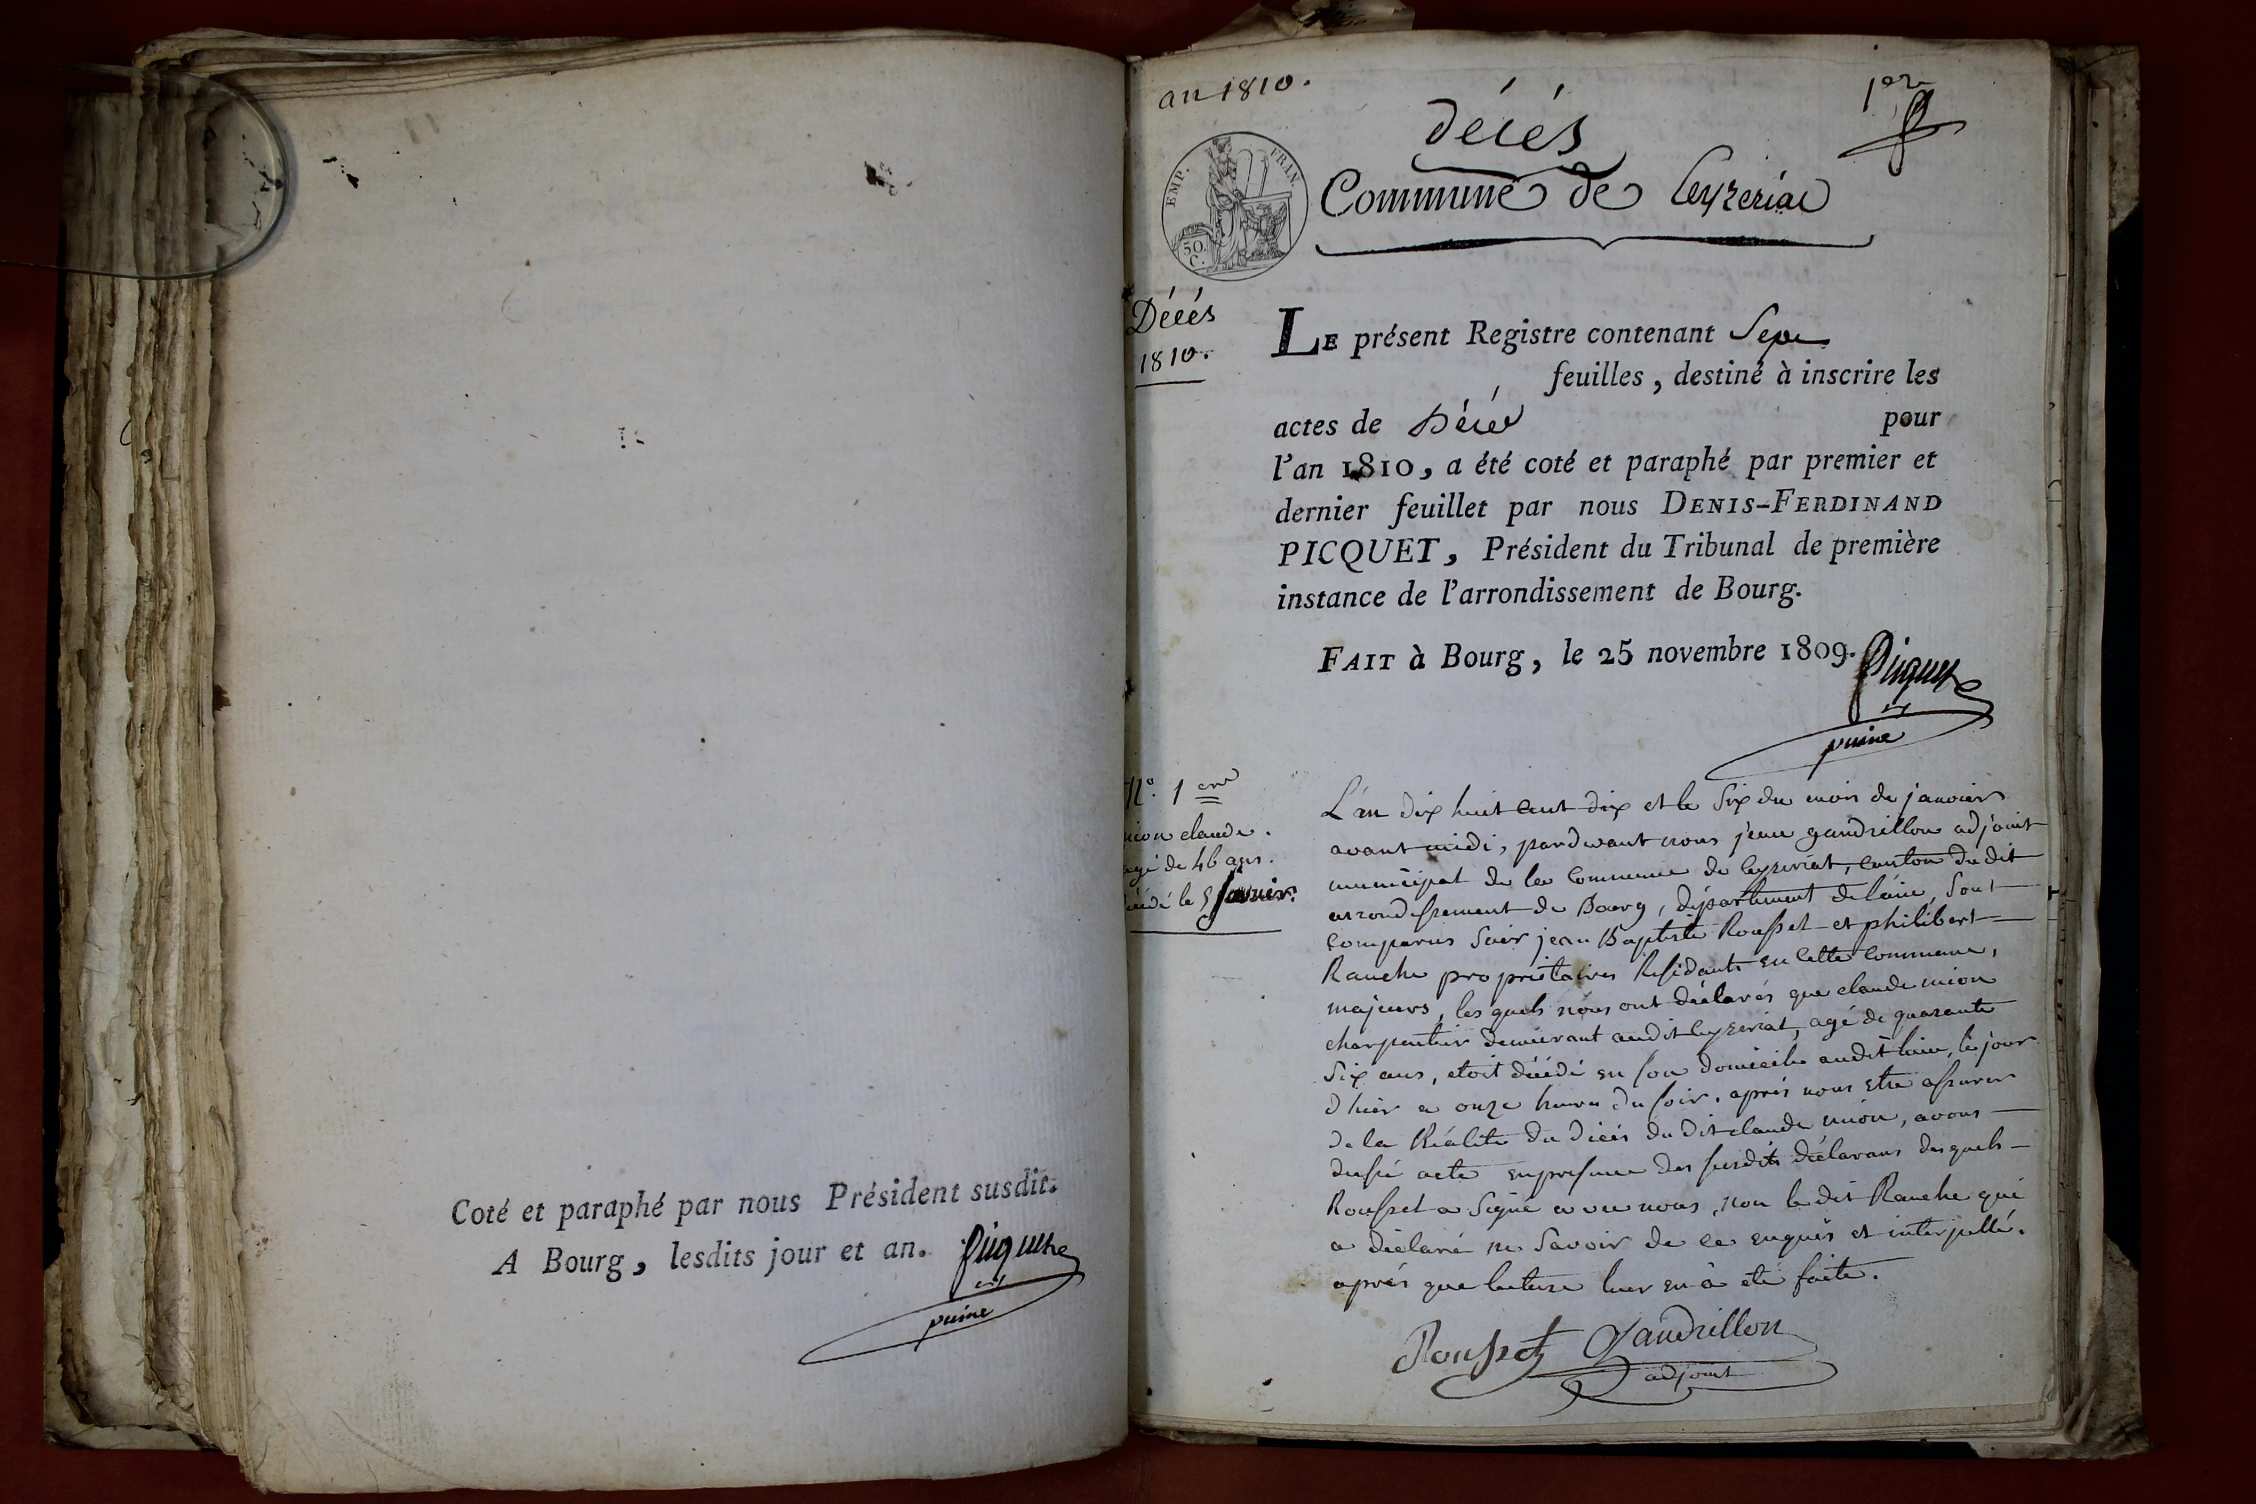 Coté et paraphé par nous Président susdit.
A Bourg, lesdits jour et an. Picquet
puiné
an 1810.
1er
décés
Commune de Ceyzeriac
EMP. FRAN.
50.
C.
Décés
1810.
LE présent Registre contenant Sept
feuilles, destiné à inscrire les
actes de Décés pour
l'an 1810, a été coté et paraphé par premier et
dernier feuillet par nous DENIS-FERDINAND
PICQUET, Président du Tribunal de première
instance de l'arrondissement de Bourg.
FAIT à Bourg, le 25 novembre 1809.
Picquet
puiné
N.° 1er
nion claude.
agé de 46 ans.
décédé le 5 Janvier.
L'an dix huit cent dix et le Six du mois de janvier
avant midi, pardevant nous jean gandrillon adjoint
municipal de la commune de Ceyzeriat, canton du dit
arrondissement de Bourg, département de l'ain, Sont
Comparus Sieur jean Baptiste Rousset et philibert
Ranche propriétaires Résidants en cette commune,
majeurs, les quels nous ont déclarés que claude nion
charpentier demeurant audit Ceyzeriat, agé de quarante
Six ans, etoit décédé en son domicile audit lieu, le jour
d'hier a onze heures du soir. aprés nous etre assurer
de la Réalité du décés du dit claude nion, avons
dressé acte en presence des susdits déclarans desquels
Rousset a Signé avec nous, non le dit Ranche qui
a déclaré ne Savoir de ce enquis et interpellé.
aprés que lecture leur en à eté faite.
Rousset Gandrillon
adjoint